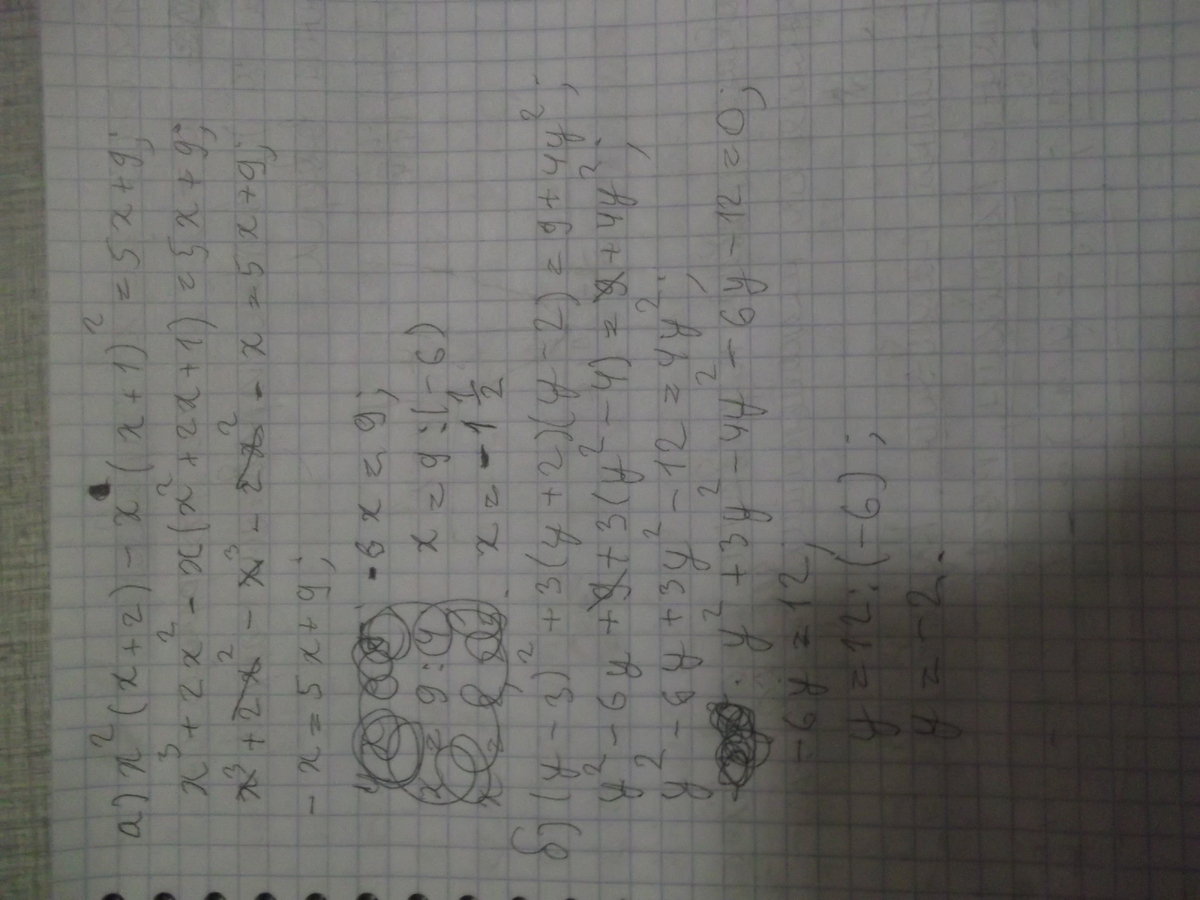 а) x²(x+2) - x(x+1)² = 5x+9;
x³+2x² - x(x²+2x+1) = 5x+9;
x³+2x² - x³ - 2x² - x = 5x+9;
-x = 5x+9;
-6x = 9;
x = 9:(-6)
x = -1 1/2
б) (y-3)² + 3(y+2)(y-2) = 9+4y²;
y² - 6y + 9 + 3(y²-4) = 9+4y²;
y² - 6y + 3y² - 12 = 4y²;
y² + 3y² - 4y² - 6y - 12 = 0;
-6y = 12;
y = 12:(-6);
y = -2.